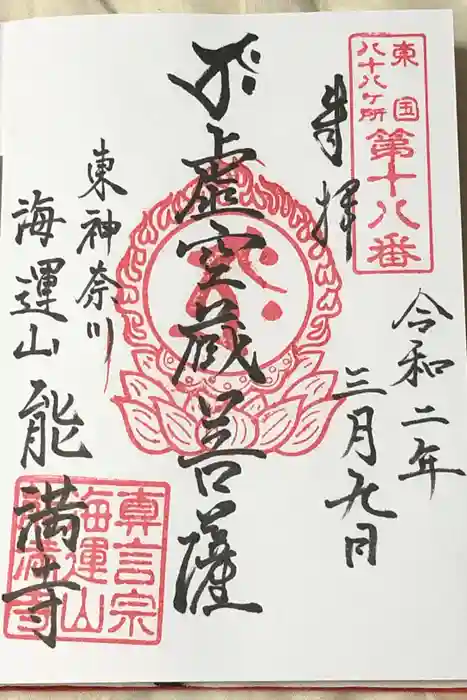 東国
八十八ヶ所
第十八番
奉拝
令和二年
三月九日
虚空蔵菩薩
東神奈川
海運山
能満寺
真言宗
海運山
能満寺